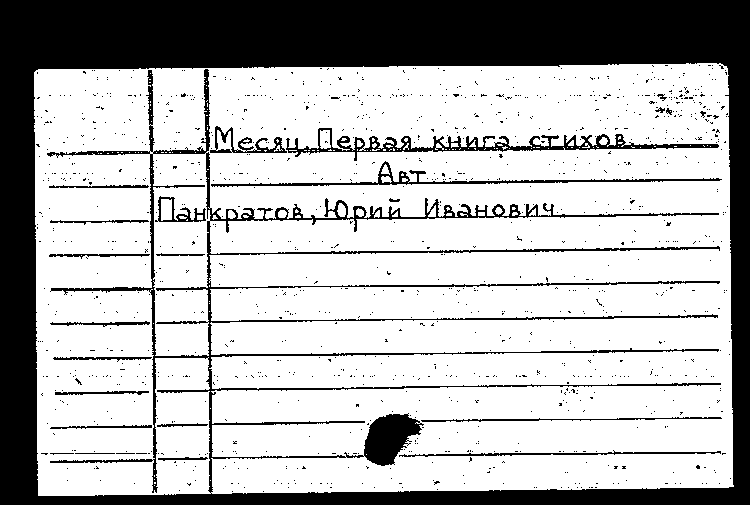 Месяц. Первая книга стихов.
Авт.
Панкратов, Юрий Иванович.